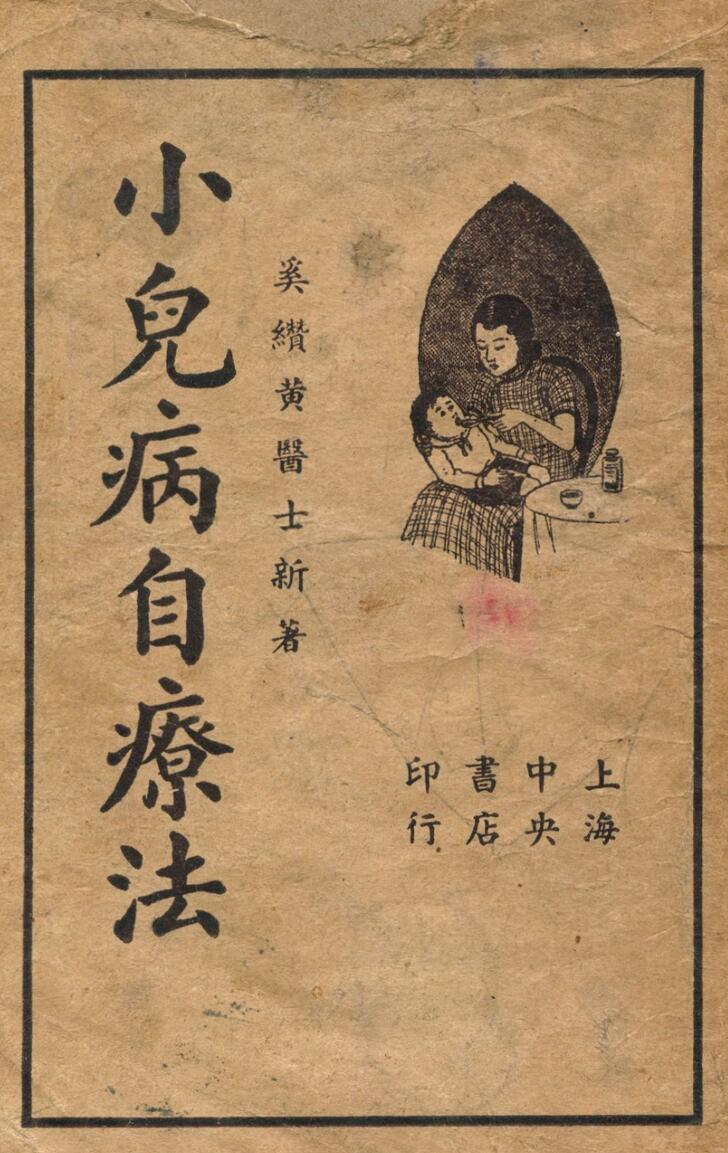 上海
中央
書店
印行
奚纘黄醫士新著
小兒病自療法